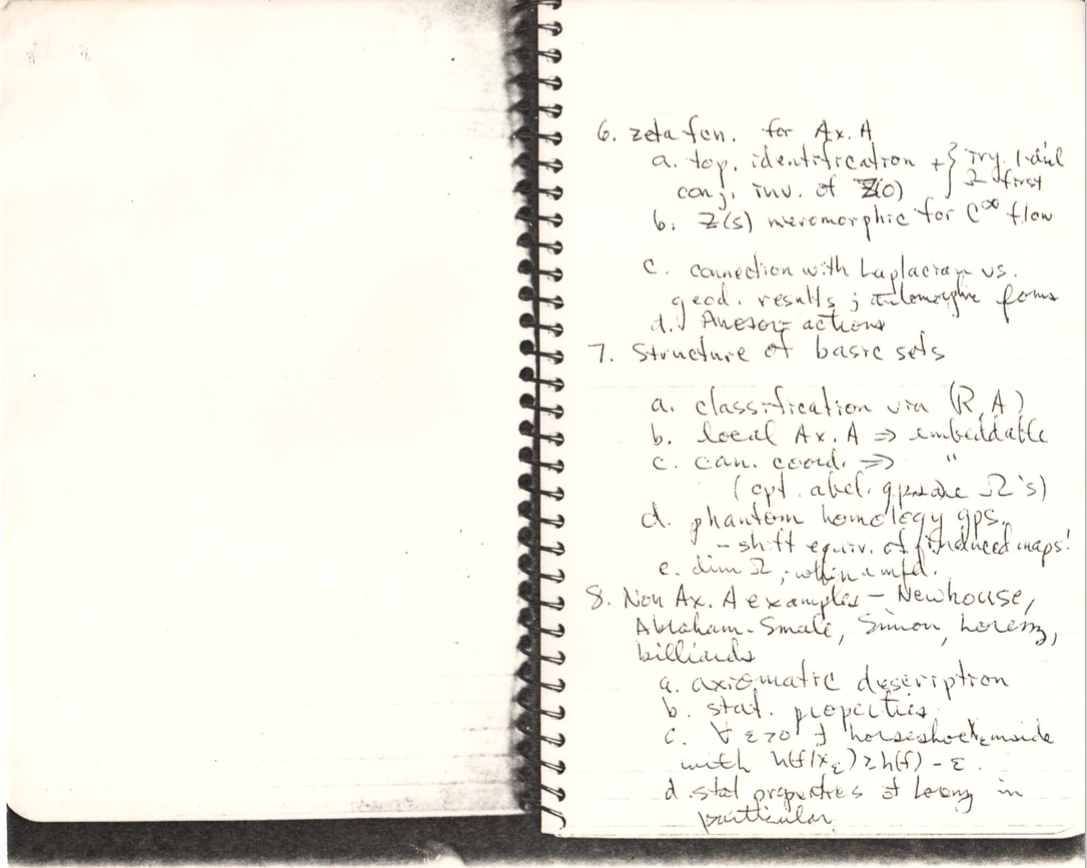 6. zeta fcn. for Ax. A
a. top. identification + } try 1-dim'l
conj. inv. of Z(0) Ω first
b. Z(s) meromorphic for C^∞ flow
c. connection with Laplacian vs.
geod. results ; automorphic forms
d. Anosov actions
7. Structure of basic sets
a. classification via (R, A)
b. local Ax. A ⇒ embeddable
c. can. coord. ⇒ "
(cpt. abel. gps are Ω's)
d. phantom homology gps.
- shift equiv. of induced maps!
e. dim Ω ; within a mfd.
8. Non Ax. A examples - Newhouse,
Abraham-Smale, Simon, Lorenz,
billiards
a. axiomatic description
b. stat. properties
c. ∀ ε>0 ∃ horseshoe X_ε inside
with h(f|X_ε) ≥ h(f) - ε.
d. stat properties of Lorenz in
particular